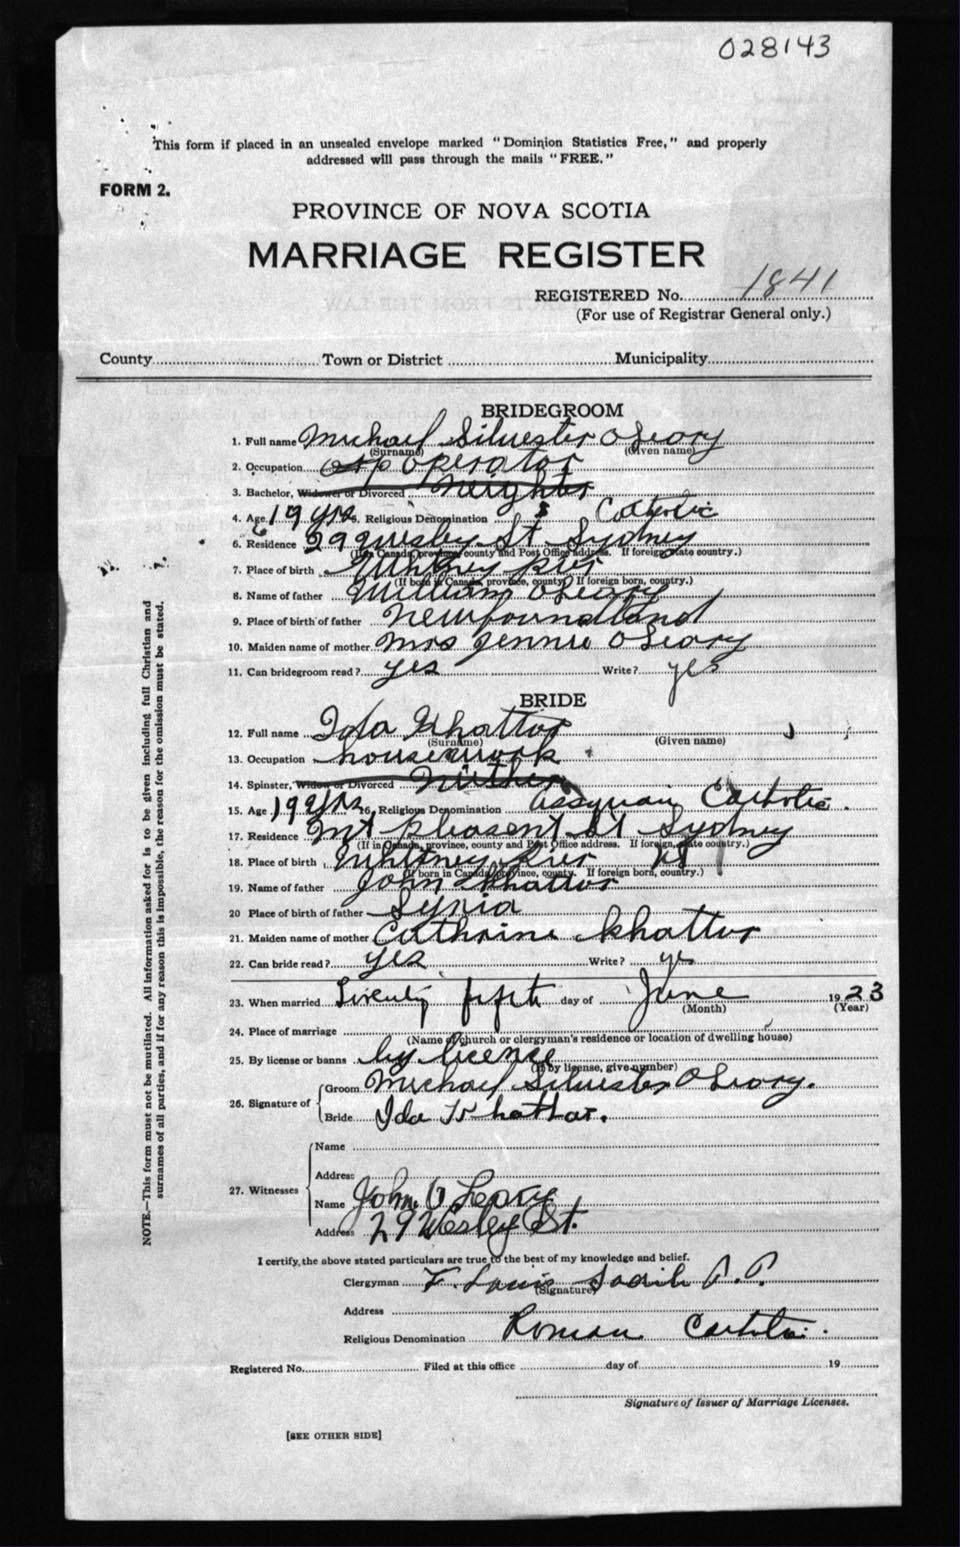 028143
This form if placed in an unsealed envelope marked "Dominion Statistics Free," and properly
addressed will pass through the mails "FREE."
FORM 2.
PROVINCE OF NOVA SCOTIA
MARRIAGE REGISTER
REGISTERED No. 1841
(For use of Registrar General only.)
County Town or District Municipality
BRIDEGROOM
1. Full name Michael Silvester O Leary
(Surname) (Given name)
2. Occupation operator
3. Bachelor, Widower or Divorced
4. Age 19 yrs 5. Religious Denomination Catholic
6. Residence 29 Wesley St Sydney
(If in Canada, province, county and Post Office address. If foreign, state country.)
7. Place of birth Whitney pier
(If born in Canada, province, county. If foreign born, country.)
8. Name of father William O Leary
9. Place of birth of father Newfoundland
10. Maiden name of mother Mrs Jennie O Leary
11. Can bridegroom read? yes Write? yes
BRIDE
12. Full name Ida Khattar
(Surname) (Given name)
13. Occupation housework
14. Spinster, Widow or Divorced
15. Age 19 yrs 16. Religious Denomination Catholic.
17. Residence Mt pleasent St Sydney
(If in Canada, province, county and Post Office address. If foreign, state country.)
18. Place of birth Whitney Pier
(If born in Canada, province, county. If foreign born, country.)
19. Name of father John Khattar
20 Place of birth of father Syria
21. Maiden name of mother Cathrine Khattar
22. Can bride read? yes Write? yes
23. When married Twenty fifth day of June 1923
(Month) (Year)
24. Place of marriage
(Name of church or clergyman's residence or location of dwelling house)
25. By license or banns by license
(If by license, give number)
26. Signature of
Groom Michael Silvester O Leary.
Bride Ida Khattar.
27. Witnesses
Name
Address
Name John O Leary
Address 29 Wesley St.
I certify, the above stated particulars are true to the best of my knowledge and belief.
Clergyman F. Louis P.P.
(Signature)
Address
Religious Denomination Roman Catholic.
Registered No. Filed at this office day of 19
Signature of Issuer of Marriage Licenses.
[SEE OTHER SIDE]
NOTE.—This form must not be mutilated. All information asked for is to be given including full Christian and
surnames of all parties, and if for any reason this is impossible, the reason for the omission must be stated.